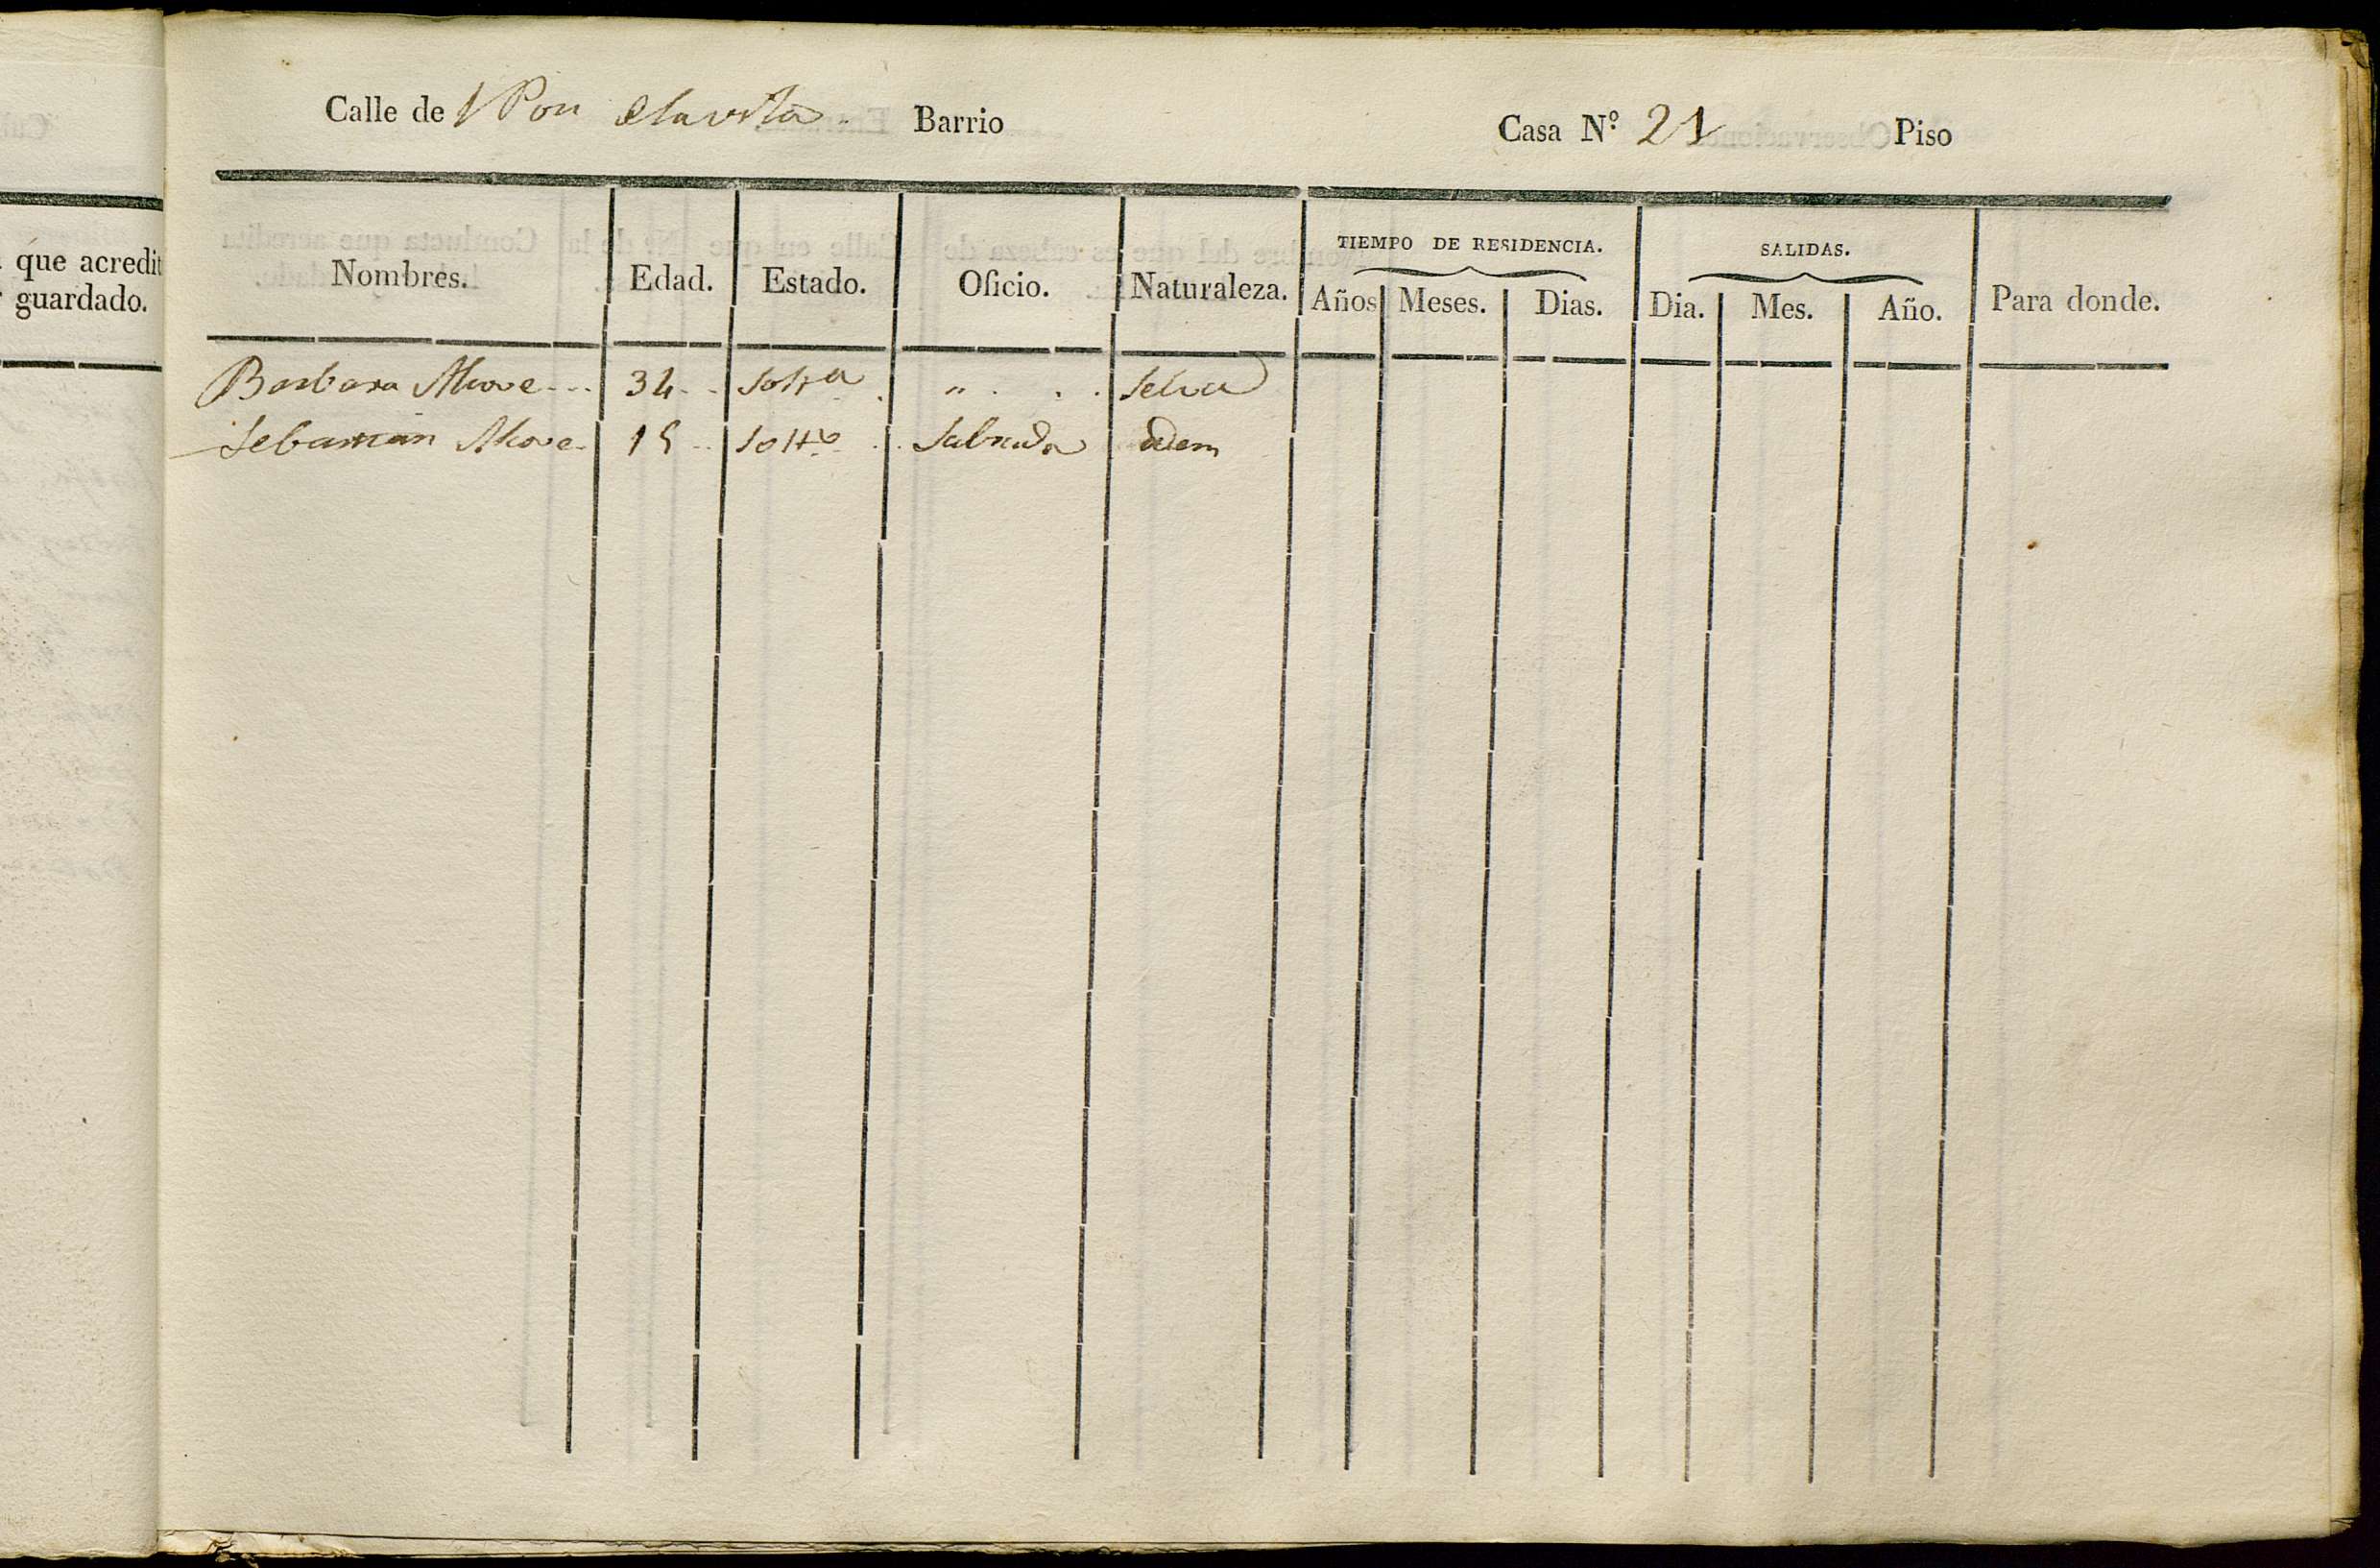 que acredit
guardado.
Calle de Pou Barrio Casa N.º 21 Piso
TIEMPO DE RESIDENCIA. SALIDAS.
Nombres. Edad. Estado. Oficio. Naturaleza. Años Meses. Dias. Dia. Mes. Año. Para donde.
Barbara 34 Solt.ª " Selva
Sebastian 15 Solt.º idem